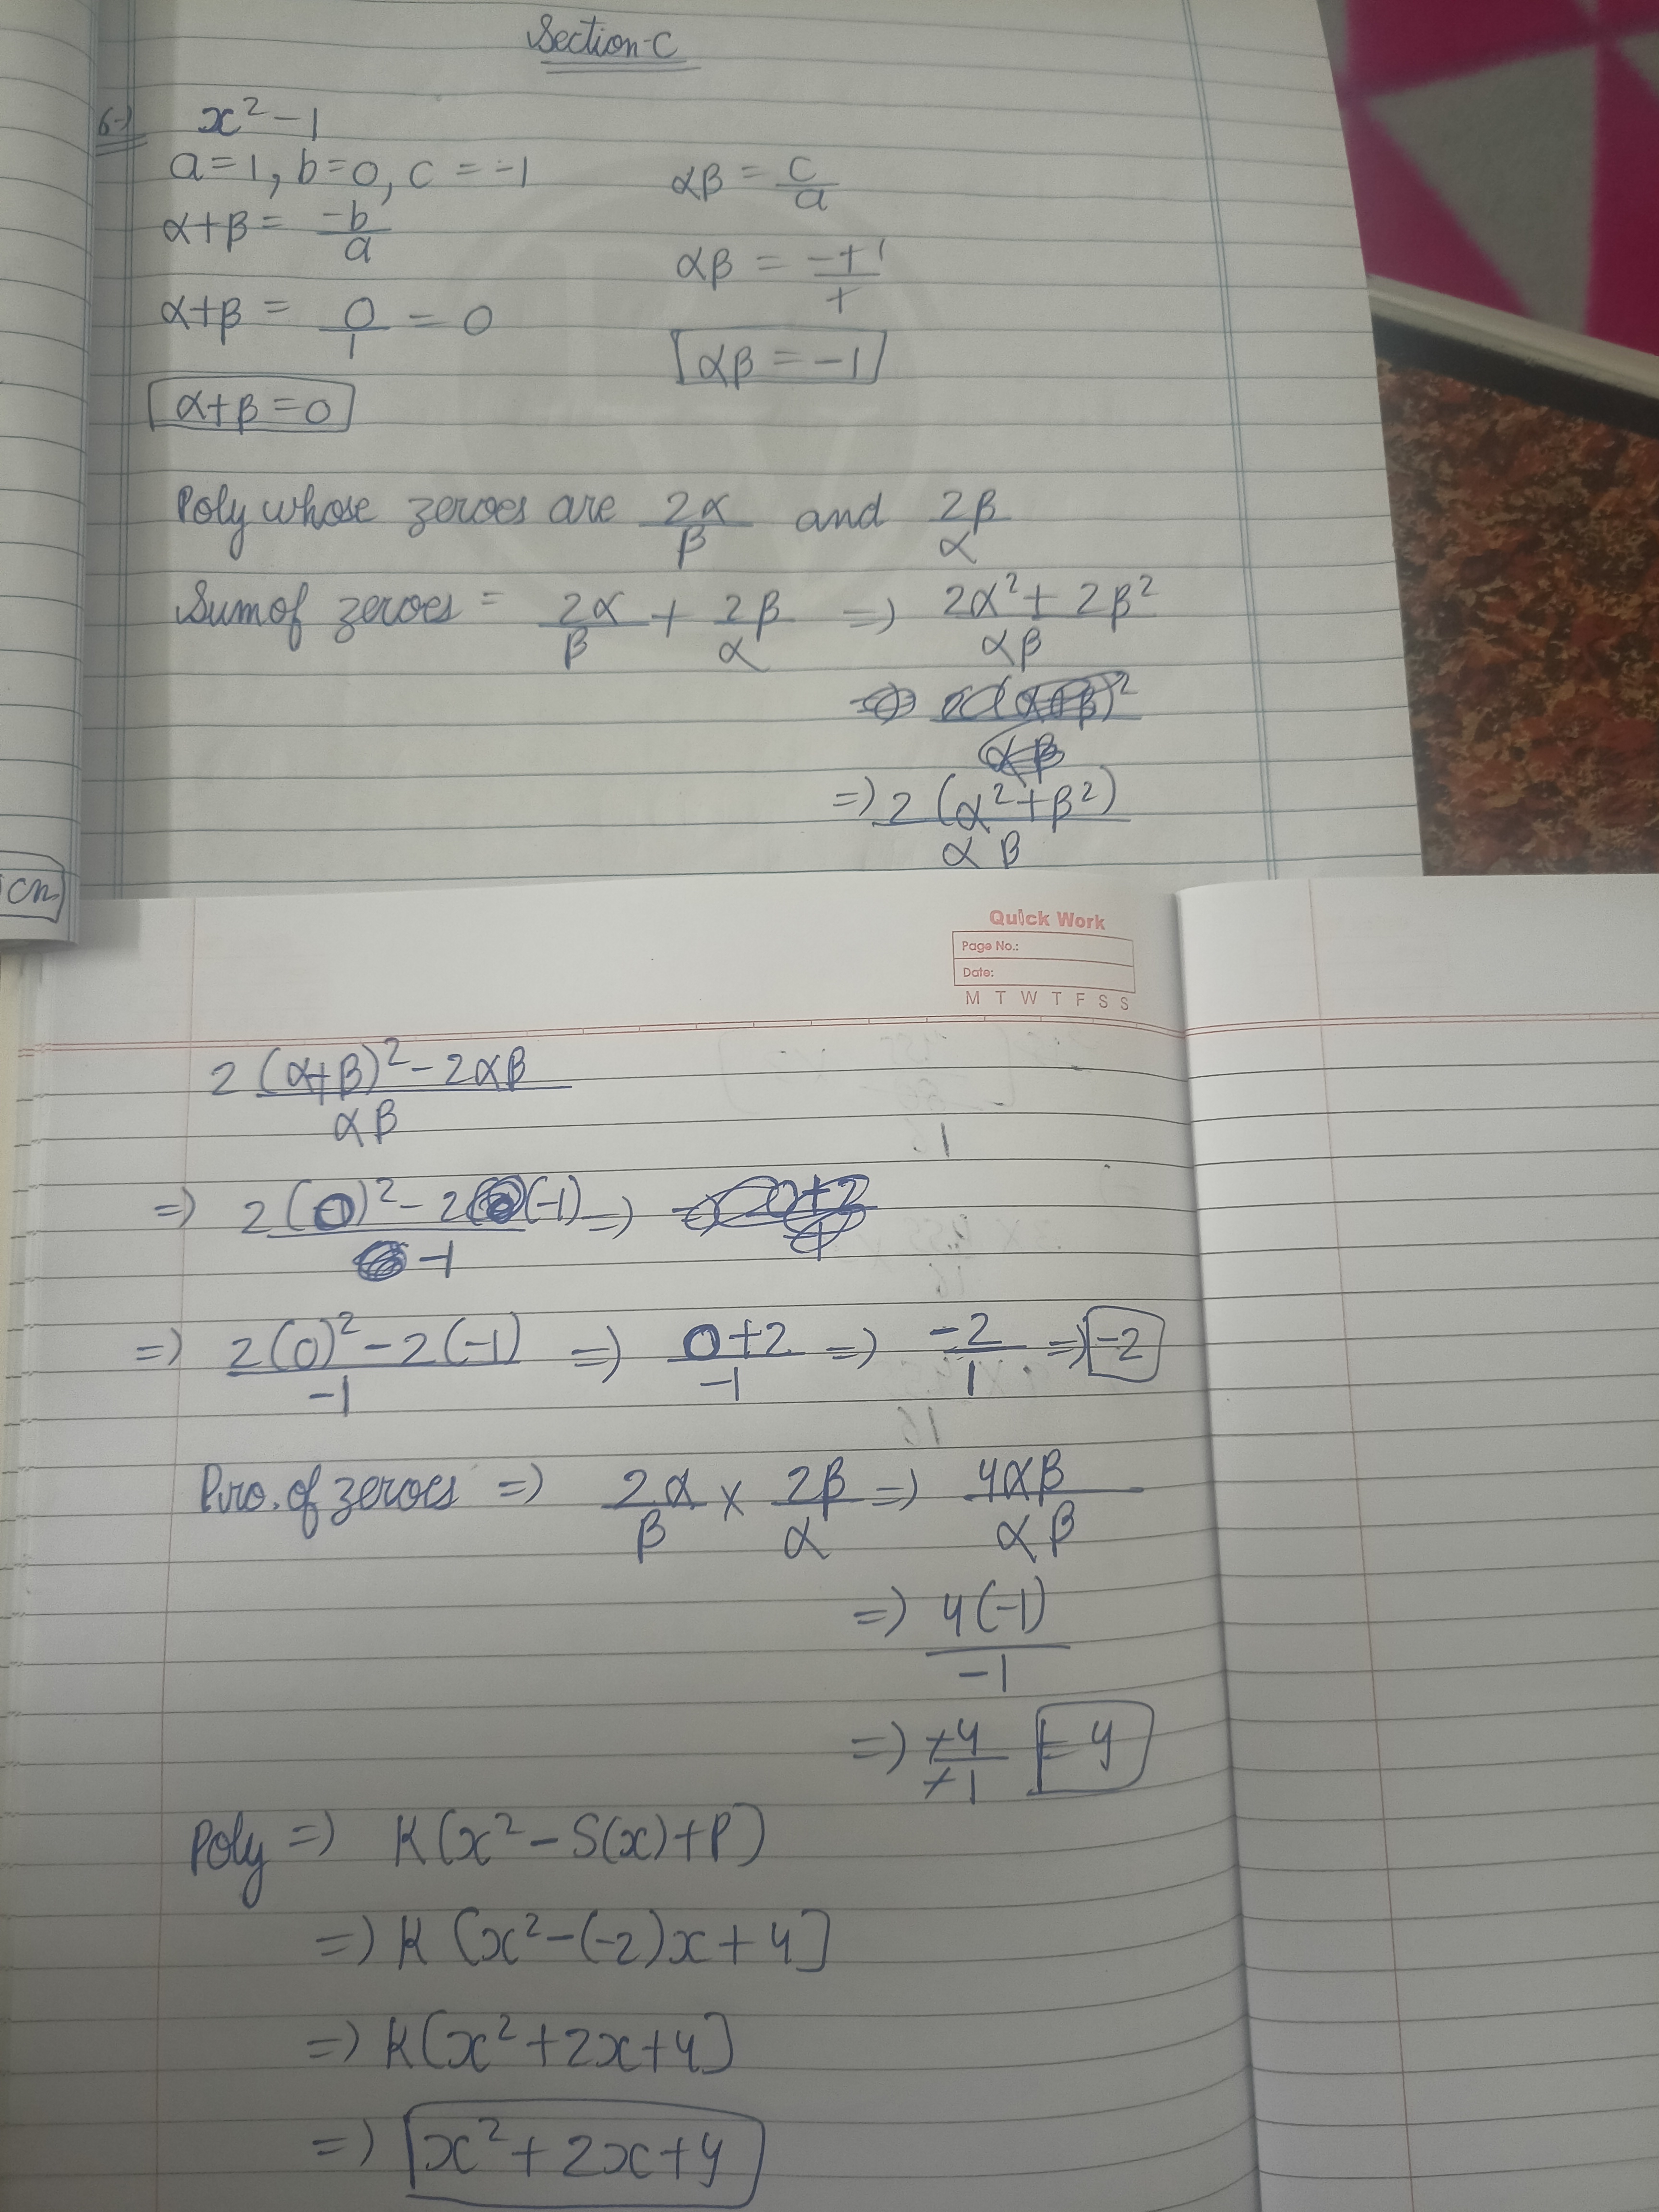 Section-C
6-) x² - 1
a=1, b=0, c = -1
α+β = -b/a
α+β = 0/1 = 0
α+β = 0
αβ = c/a
αβ = -1/1
αβ = -1
Poly whose zeroes are 2α/β and 2β/α
Sum of zeroes = 2α/β + 2β/α => 2α² + 2β²/αβ
=> 2(α²+β²)/αβ
cm
Quick Work
Page No.:
Date:
M T W T F S S
2(α+β)² - 2αβ/αβ
=> 2(0)² - 2(-1)/-1 =>
=> 2(0)² - 2(-1)/-1 => 0+2/-1 => -2/1 => -2
Pro. of zeroes => 2α/β × 2β/α => 4αβ/αβ
=> 4(-1)/-1
=> -4/-1 = 4
Poly => K(x² - S(x) + P)
=> K[x² - (-2)x + 4]
=> K[x² + 2x + 4]
=> x² + 2x + 4